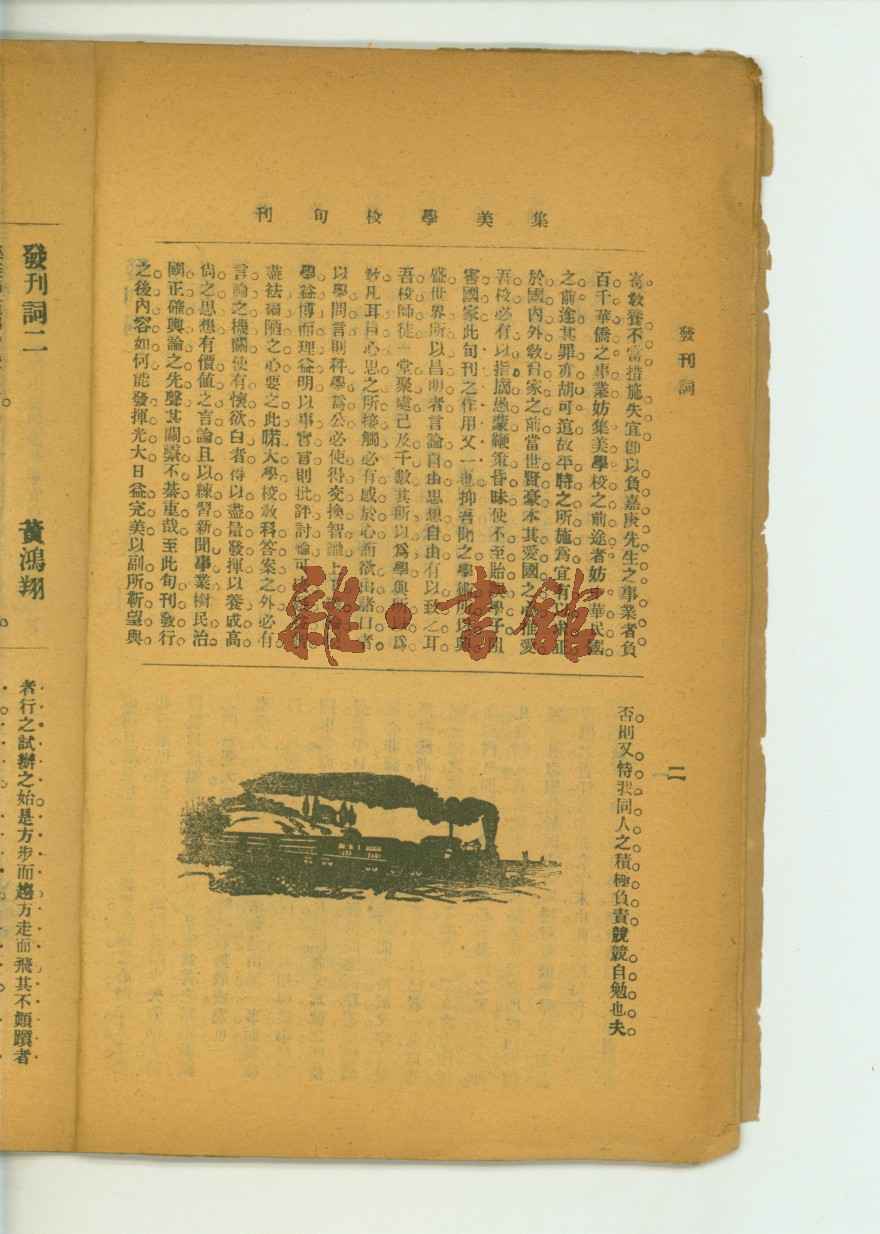 集美學校旬刊
發刊詞
二
苟敎養不當措施失宜卽以負嘉庚先生之事業者負
百千華僑之事業妨集美學校之前途者妨 華民國
之前途其罪亦胡可逭故平時之所施爲宜有以 正
於國內外敎育家之前當世賢豪本其愛國之心推愛
吾校必有以指摘愚蒙鞭策昏昧使不至貽誤學子阻
害國家此旬刊之作用又一也抑吾聞之學術所以興
盛世界所以昌明者言論自由思想自由有以致之耳
吾校師徒一堂聚處已及千數其所以爲學與所以爲
敎凡耳目心思之所接觸必有感於心而欲出諸口者
以學問言則科學爲公必使得交換智識上
學益博而理益明以事實言則批評討論可
盡祛痼陋之心要之此喏大學校敎科答案之外必有
言論之機關使有懷欲白者得以盡量發揮以養成高
尙之思想有價値之言論且以練習新聞事業樹民治
國正確輿論之先聲其關繫不綦重哉至此旬刊發行
之後內容如何能發揮光大日益完美以副所靳望與
否則又恃我同人之積極負責兢兢自勉也夫
發刊詞二
黃鴻翔
者行之試辦之始是方步而趨方走而飛其不顚躓者
雜·書館